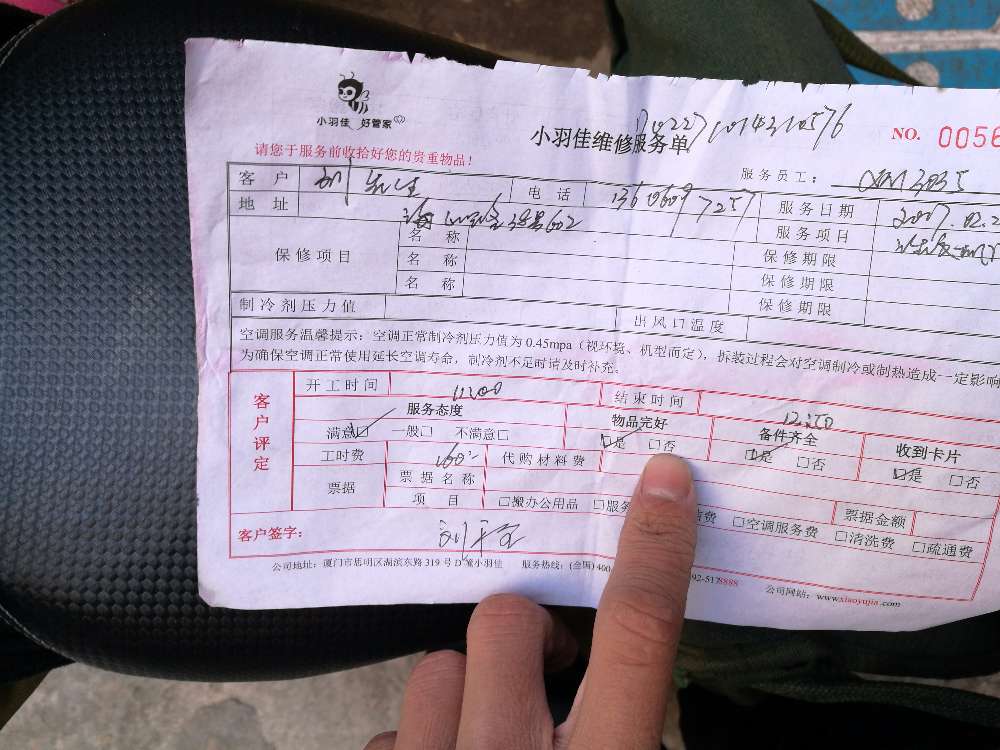 小羽佳 好管家
小羽佳维修服务单
NO. 0056
请您于服务前收拾好您的贵重物品！
服务员工：
客户 刘先生 电话 13606097257 服务日期
地址 602 服务项目
保修项目 名称 保修期限
名称 保修期限
名称 保修期限
制冷剂压力值 出风口温度
空调服务温馨提示：空调正常制冷剂压力值为0.45mpa（视环境、机型而定），拆装过程会对空调制冷或制热造成一定影响
为确保空调正常使用延长空调寿命，制冷剂不足时请及时补充。
客户评定
开工时间 结束时间
服务态度 物品完好 备件齐全 收到卡片
满意□ 一般□ 不满意□ □是 □否 □是 □否 □是 □否
工时费 代购材料费
票据 票据名称 票据金额
项目 □搬办公用品 □服务 费 □空调服务费 □清洗费 □疏通费
客户签字：
公司地址：厦门市思明区湖滨东路319号D 小羽佳 服务热线：(全国) 400 92-5178888 公司网站：www.xiaoyujia.com